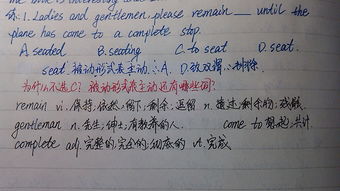 1. Ladies and gentlemen, please remain ___ until the
plane has come to a complete stop.
A. seated B. seating C. to seat D. seat
seat 被动形式表主动 ∴ A. D. 排除
为什么不选C? 被动形式表主动还有哪些词?
remain vi. 保持;依然;留下;剩余;逗留 n. 遗迹;剩余的;残骸
gentleman n. 先生;绅士;有教养的人. come to 想起;共计
complete adj. 完整的;完全的;彻底的 vt. 完成